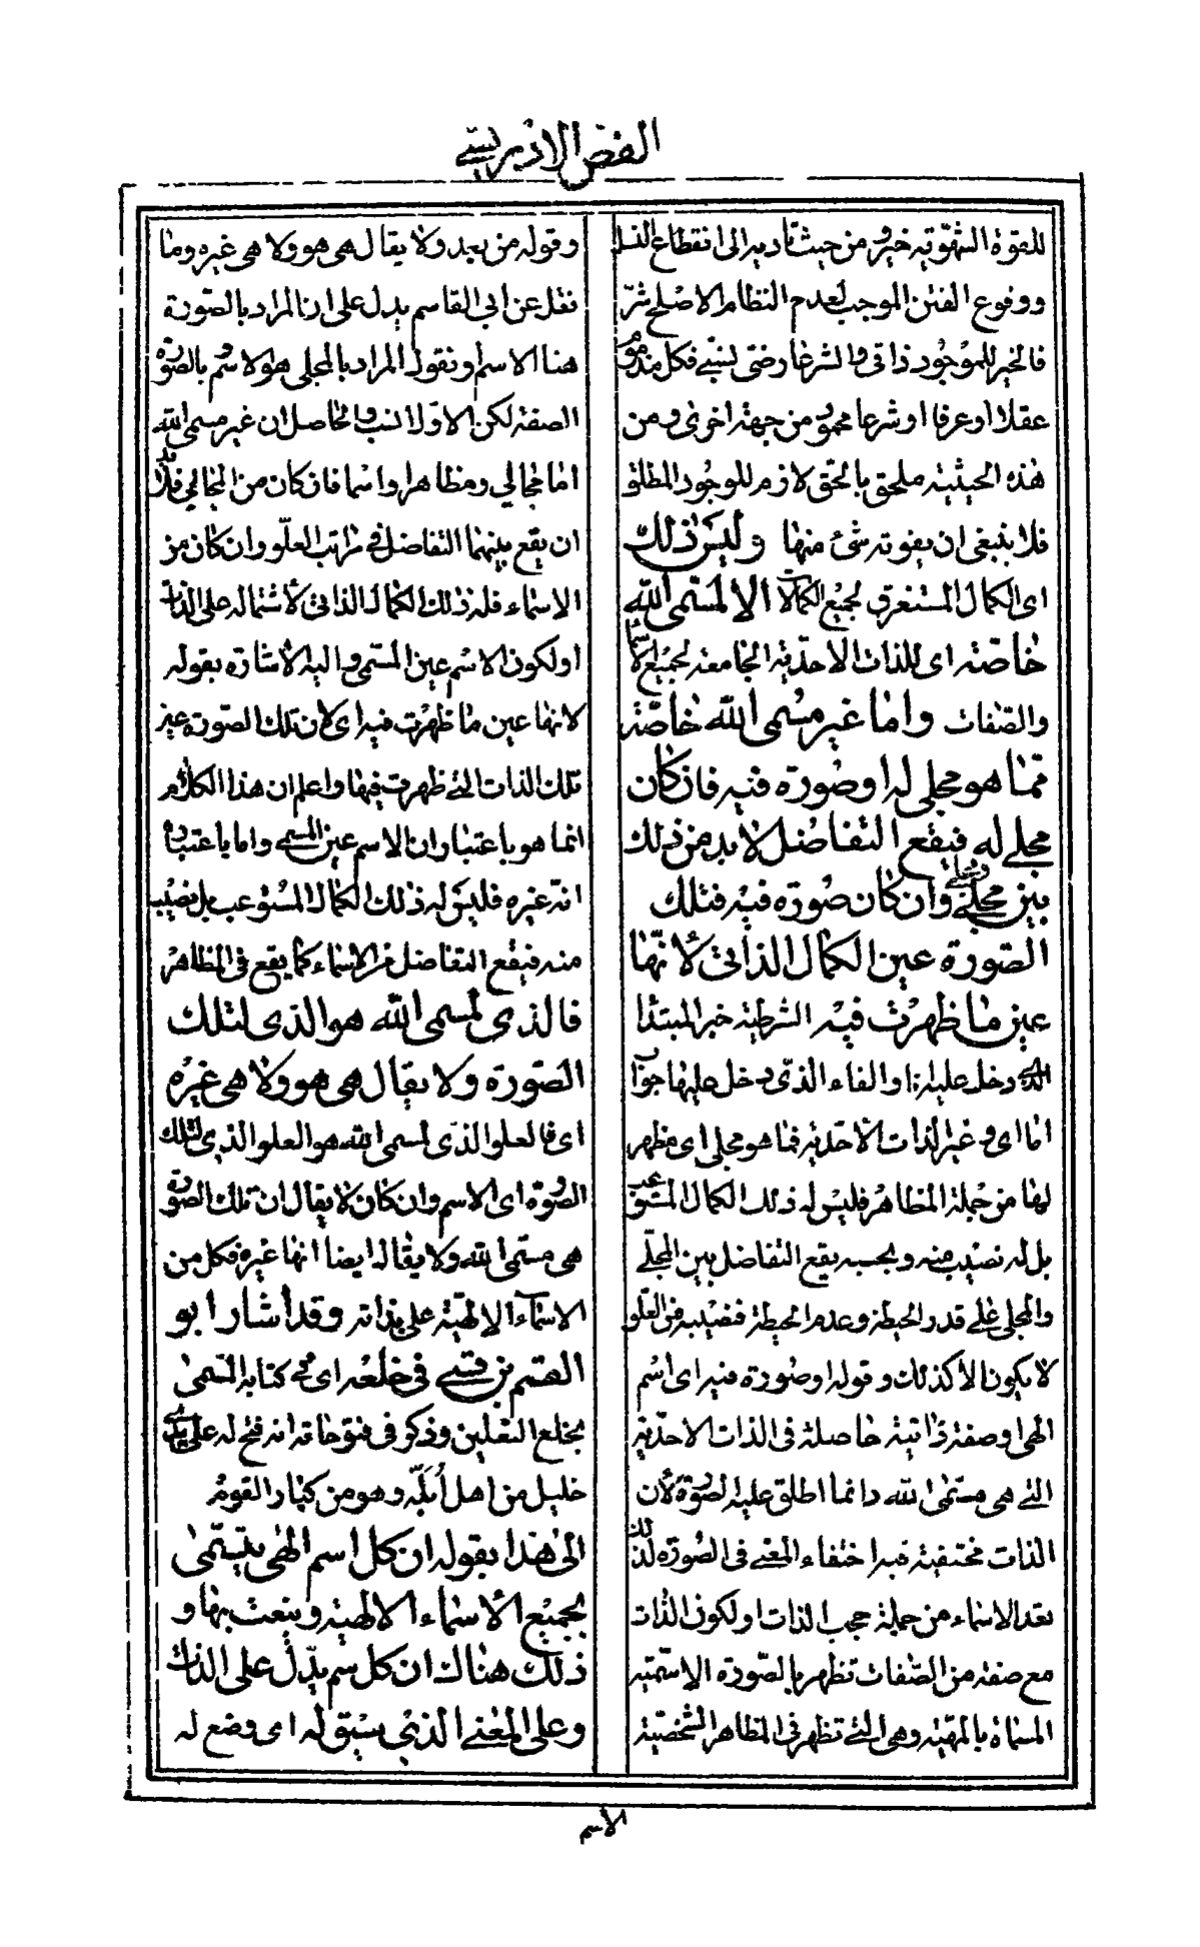 الفص الادريسي
للقوة الشهوية خير ومن حيث تاديه الى انقطاع النسل
ووقوع الفتن الموجب لعدم النظام الاصلح شر
فالخير للموجود ذاتي والشر عارضي نسبي فكل مذموم
عقلا او عرفا او شرعا محمود من جهة اخرى ومن
هذه الحيثية ملحق بالحق لازم للوجود المطلق
فلا ينبغي ان يفوته شئ منها وليس ذلك
اى الكمال المستغرق لجميع الكمالات الا لمسمى الله
خاصة اى للذات الاحدية الجامعة لجميع الاسماء
والصفات واما غير مسمى الله خاصة
مما هو مجلى له او صورة فيه فان كان
مجلى له فيقع التفاضل لا بد من ذلك
بين مجلى ومجلى وان كان صورة فيه فتلك
الصورة عين الكمال الذاتى لانها
عين ما ظهرت فيه الشرطية خبر المبتدا
الذى دخل عليه اما والفاء الذى دخل عليها جواب
اما اى وغير الذات الاحدية فما هو مجلى اى مظهر
لها من جملة المظاهر فليس له ذلك الكمال المستوعب
بل له نصيب منه وبحسبه يقع التفاضل بين المجلى
والمجلى على قدر الحيطة وعدم الحيطة فنصيبه من العلو
لا يكون الا كذلك وقوله او صورة فيه اى اسم
الهى او صفة ذاتية حاصلة فى الذات الاحدية
التى هى مسمى الله وانما اطلق عليه الصورة لان
الذات مختفية فيه اختفاء المعنى فى الصورة لذلك
تعد الاسماء من جملة حجب الذات او لكون الذات
مع صفة من الصفات تظهر بالصورة الاسمية
المسماة بالمهية وهى التى تظهر فى المظاهر الشخصية
وقوله من بعد ولا يقال هى هو ولا هى غيره وما
نقل عن ابى القاسم يدل على ان المراد بالصورة
هنا الاسم او نقول المراد بالمجلى هو الاسم وبالصورة
الصفة لكن الاول انسب والحاصل ان غير مسمى الله
اما مجالي ومظاهر او اسما فان كان من المجالي فلا بد
ان يقع بينهما التفاضل فى مراتب العلو وان كان من
الاسماء فله ذلك الكمال الذاتى لاشتماله على الذات
او لكون الاسم عين المسمى واليه الاشارة بقوله
لانها عين ما ظهرت فيه اى لان تلك الصورة عين
تلك الذات التى ظهرت فيها واعلم ان هذا الكلام
انما هو باعتبار ان الاسم عين المسمى واما باعتبار
انه غيره فليس له ذلك الكمال المستوعب بل نصيب
منه فيقع التفاضل فى الاسماء كما يقع فى المظاهر
فالذى لمسمى الله هو الذى لتلك
الصورة ولا يقال هى هو ولا هى غيره
اى فالعلو الذى لمسمى الله هو العلو الذى لتلك
الصورة اى الاسم وان كان لا يقال ان تلك الصورة
هى مسمى الله ولا يقال ايضا انها غيره فكل من
الاسماء الالهية على بذاته وقد اشار ابو
القسم بن قسى فى خلعه اى فى كتابه المسمى
بخلع النعلين وذكر فى فتوحاته انه فتح له على يدى
خليل من اهل لبلة وهو من كبار القوم
الى هذا بقوله ان كل اسم الهى يتسمى
بجميع الاسماء الالهية وينعت بها و
ذلك هناك ان كل اسم يدل على الذات
وعلى المعنى الذى سيق له اى وضع له
الاسم